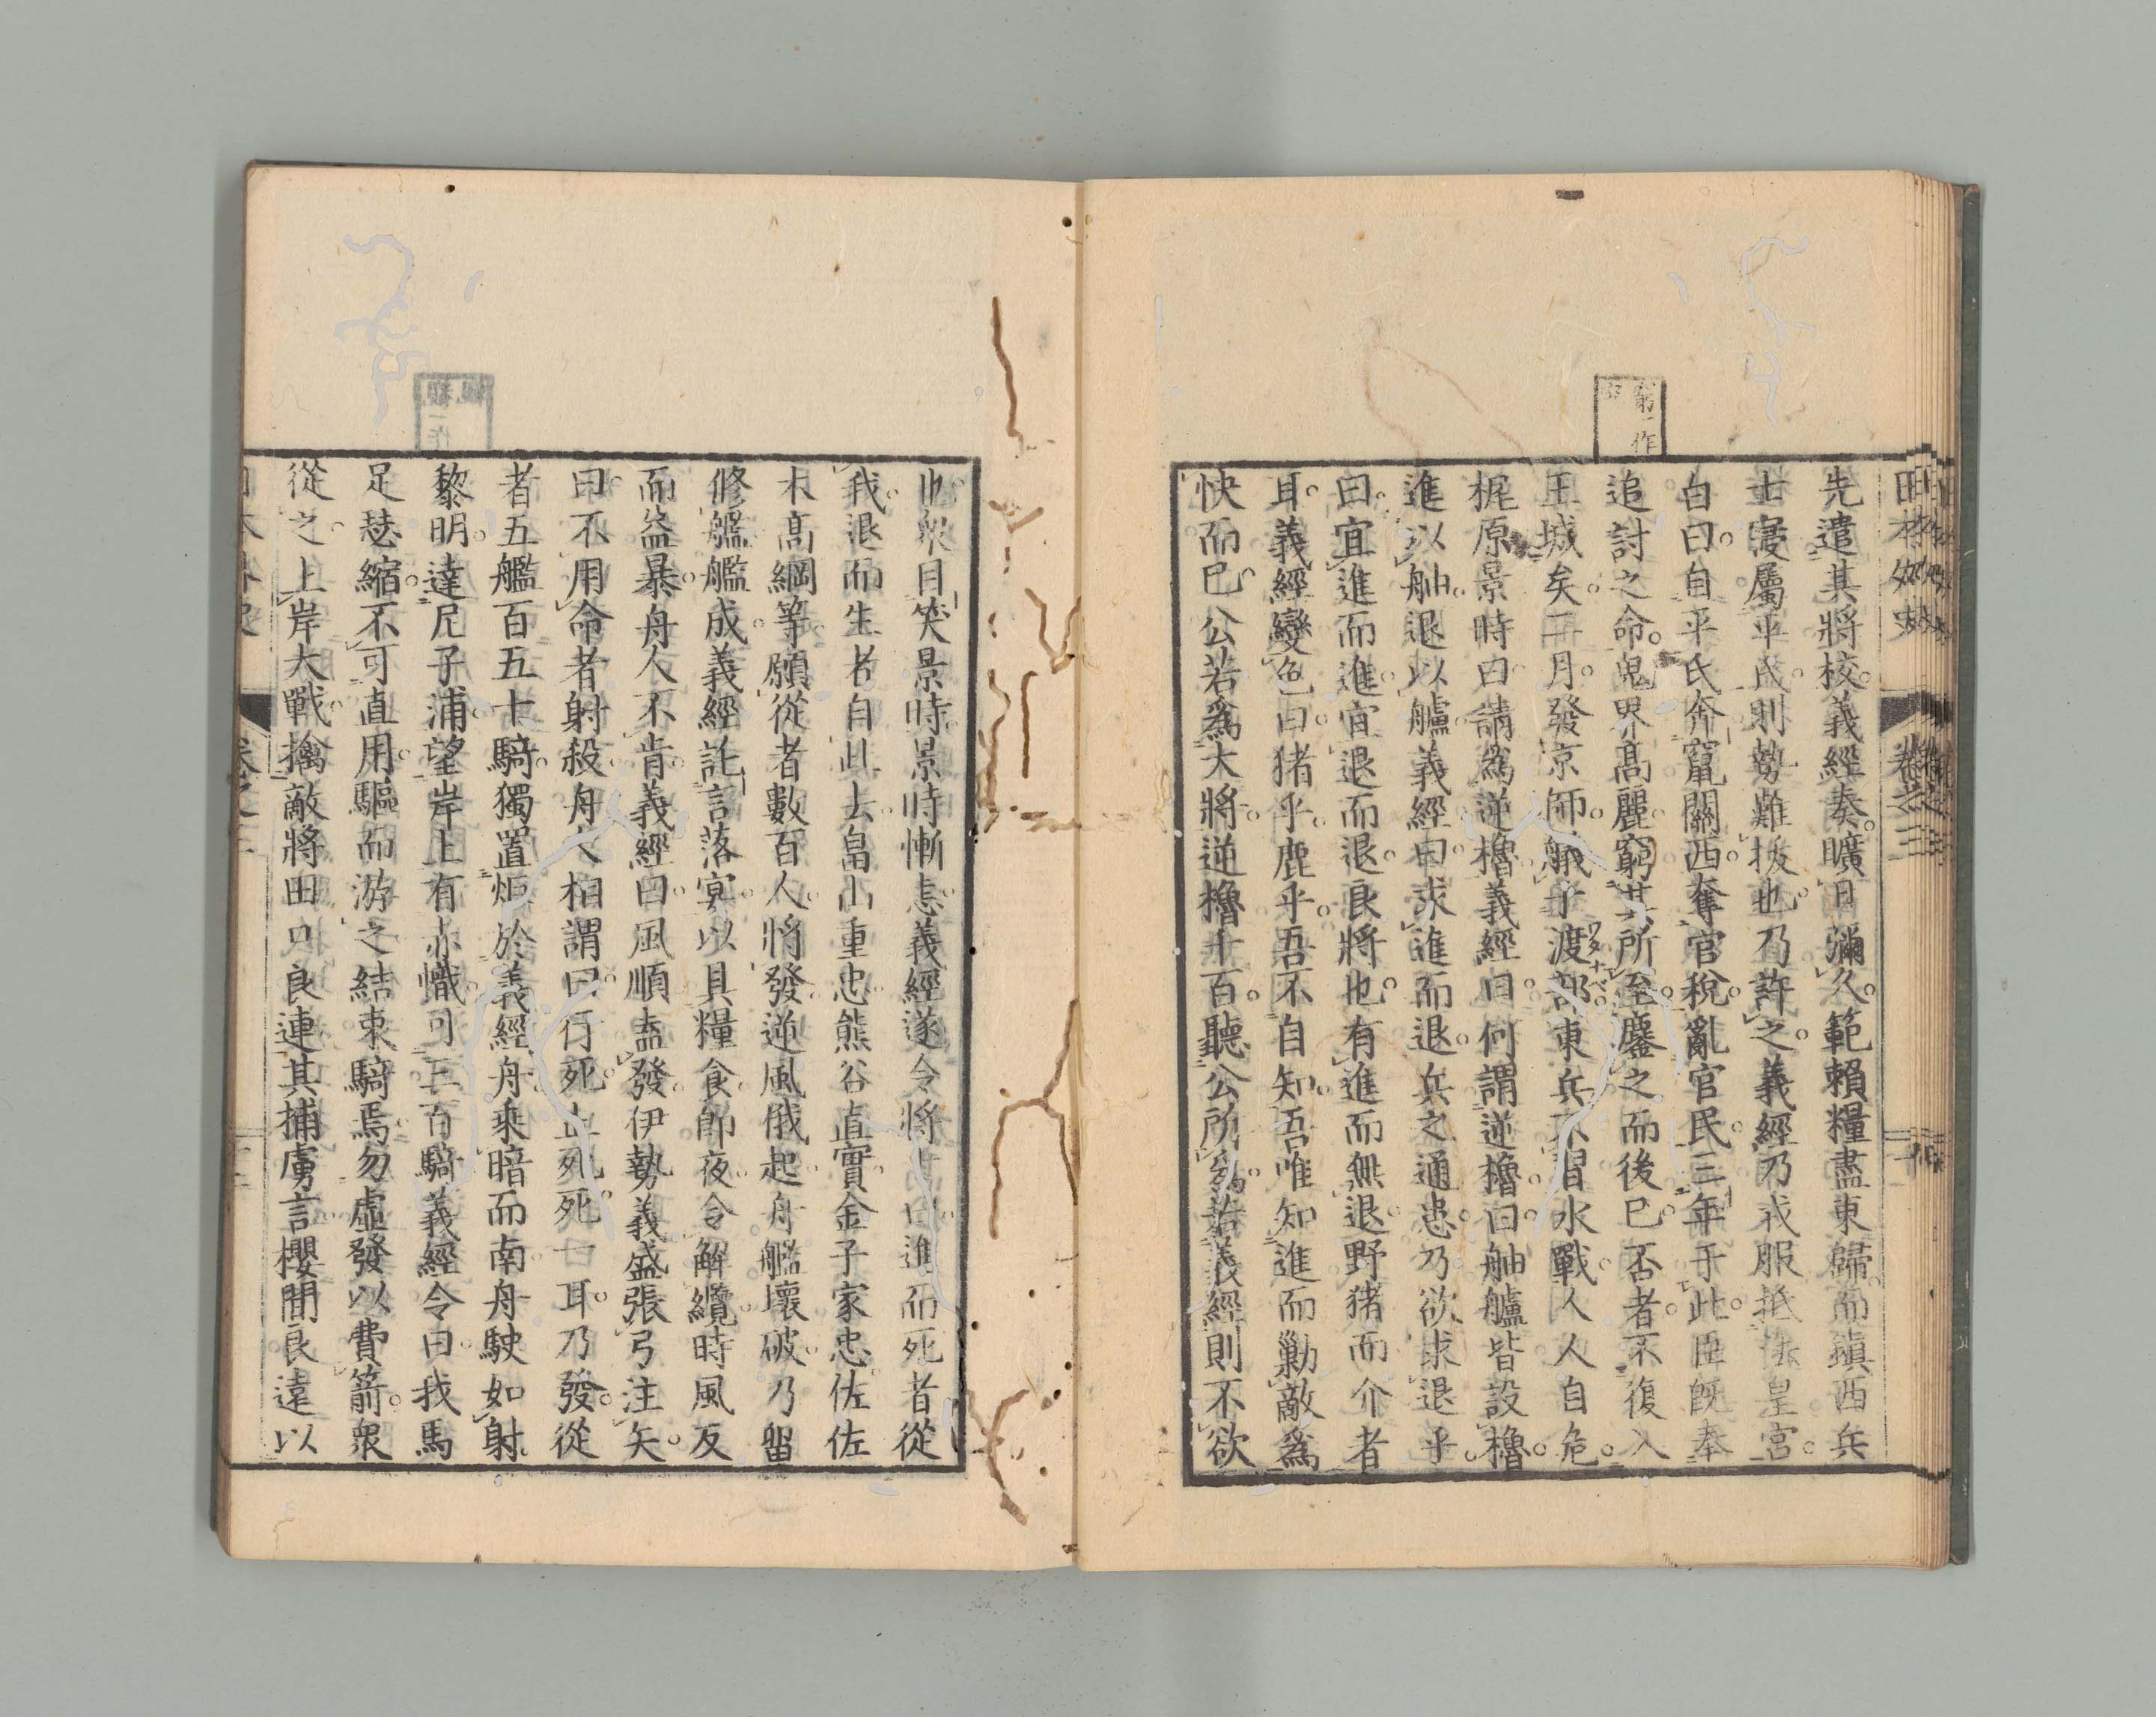 窮一作
先遣其將校義經奏曠日彌久範賴糧盡東歸而鎮西兵
士寖屬平氏則勢難拔也乃許之義經乃戎服抵法皇宮
白曰自平氏奔竄關西奪官稅亂官民三年于此臣既奉
追討之命鬼界高麗窮其所至鏖之而後已否者不復入
王城矣二月發京師艤于渡部東兵不習水戰人人自危
ワタナベ
梶原景時曰請爲逆櫓義經曰何謂逆櫓曰舳艫皆設櫓
進以舳退以艫義經曰求進而退兵之通患乃欲求退乎
曰宜進而進宜退而退良將也有進而無退野猪而介者
耳義經變色曰猪乎鹿乎吾不自知吾唯知進而勦敵爲
快而已公若爲大將逆櫓千百聽公所爲若義經則不欲
也衆目笑景時景時慚恚義經遂令將士曰進而死者從
我退而生者自此去畠山重忠熊谷直實金子家忠佐佐
木高綱等願從者數百人將發逆風俄起舟艦壞破乃留
修艦艦成義經託言落宴以具糧食卽夜令解纜時風反
而益暴舟人不肯義經曰風順盍發伊勢義盛張弓注矢
曰不用命者射殺舟人相謂曰行死止死死一耳乃發從
者五艦百五十騎獨置炬於義經舟乘暗而南舟駛如射
黎明達尼子浦望岸上有赤幟可三百騎義經令曰我馬
足趑縮不可直用驅而游之結束騎焉勿虛發以費箭衆
從之上岸大戰擒敵將田口良連其捕虜言櫻間良遠以